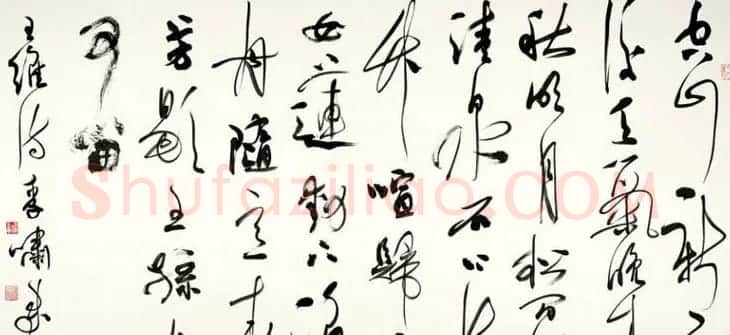 空山新
後天氣晚
秋明月松間
清泉石上
竹喧歸
女蓮動下
舟隨意春
芳歇王孫
可留
王維诗李嘯
Shufaziliao.COM